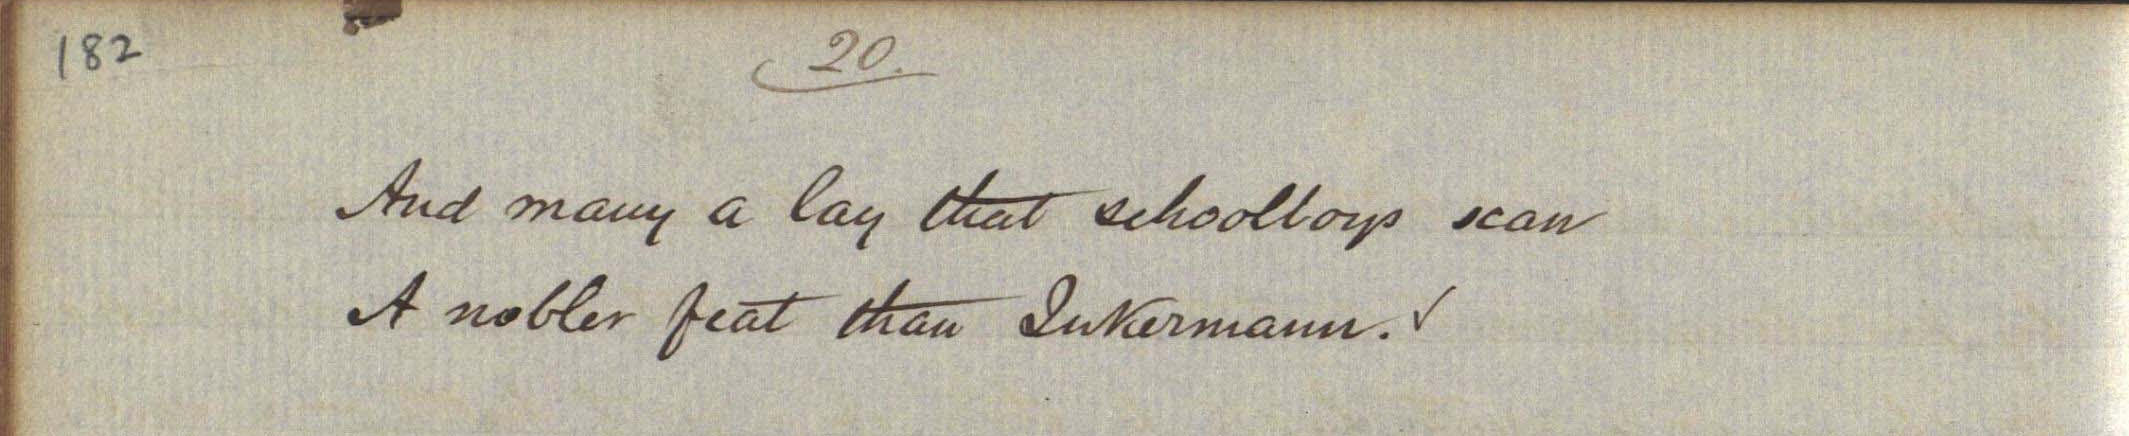 182
20.
And many a lay that schoolboys scan
A nobler feat than Inkermann. ✓